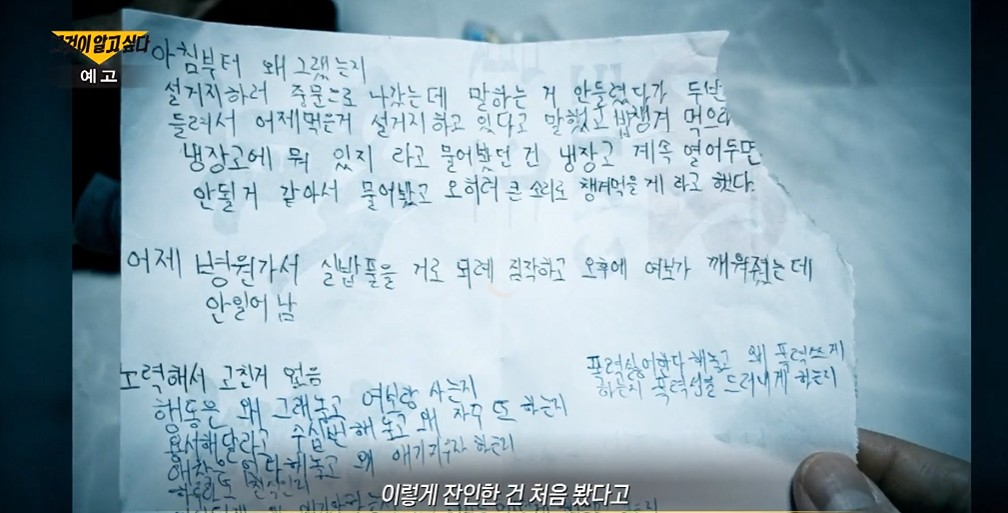 그것이 알고 싶다
예고
아침부터 왜 그랬는지
설거지하러 주문으로 나갔는데 말하는 거 안들렸다가 두번
들려서 어제먹은거 설거지하고 있다고 말했고 밥챙겨 먹으라
냉장고에 뭐 있지 라고 물어봤던 건 냉장고 계속 열어두면
안될거 같아서 물어봤고 오히려 큰 소리로 챙겨먹을게 라고 했다.
어제 병원가서 실밥풀을 거로 되레 짐작하고 오후에 여보가 깨워줬는데
안일어남
노력해서 고친게 없음
폭력싫어한다 해놓고 왜 폭력쓰게
하는지 폭력성을 드러내게 하는지
행동은 왜 그래놓고 여보랑 사는지
용서해달라고 수십번 해놓고 왜 자꾸 또 하는지
애착은 없다해놓고 왜 애기지우자 하는지
이렇게 잔인한 건 처음 봤다고